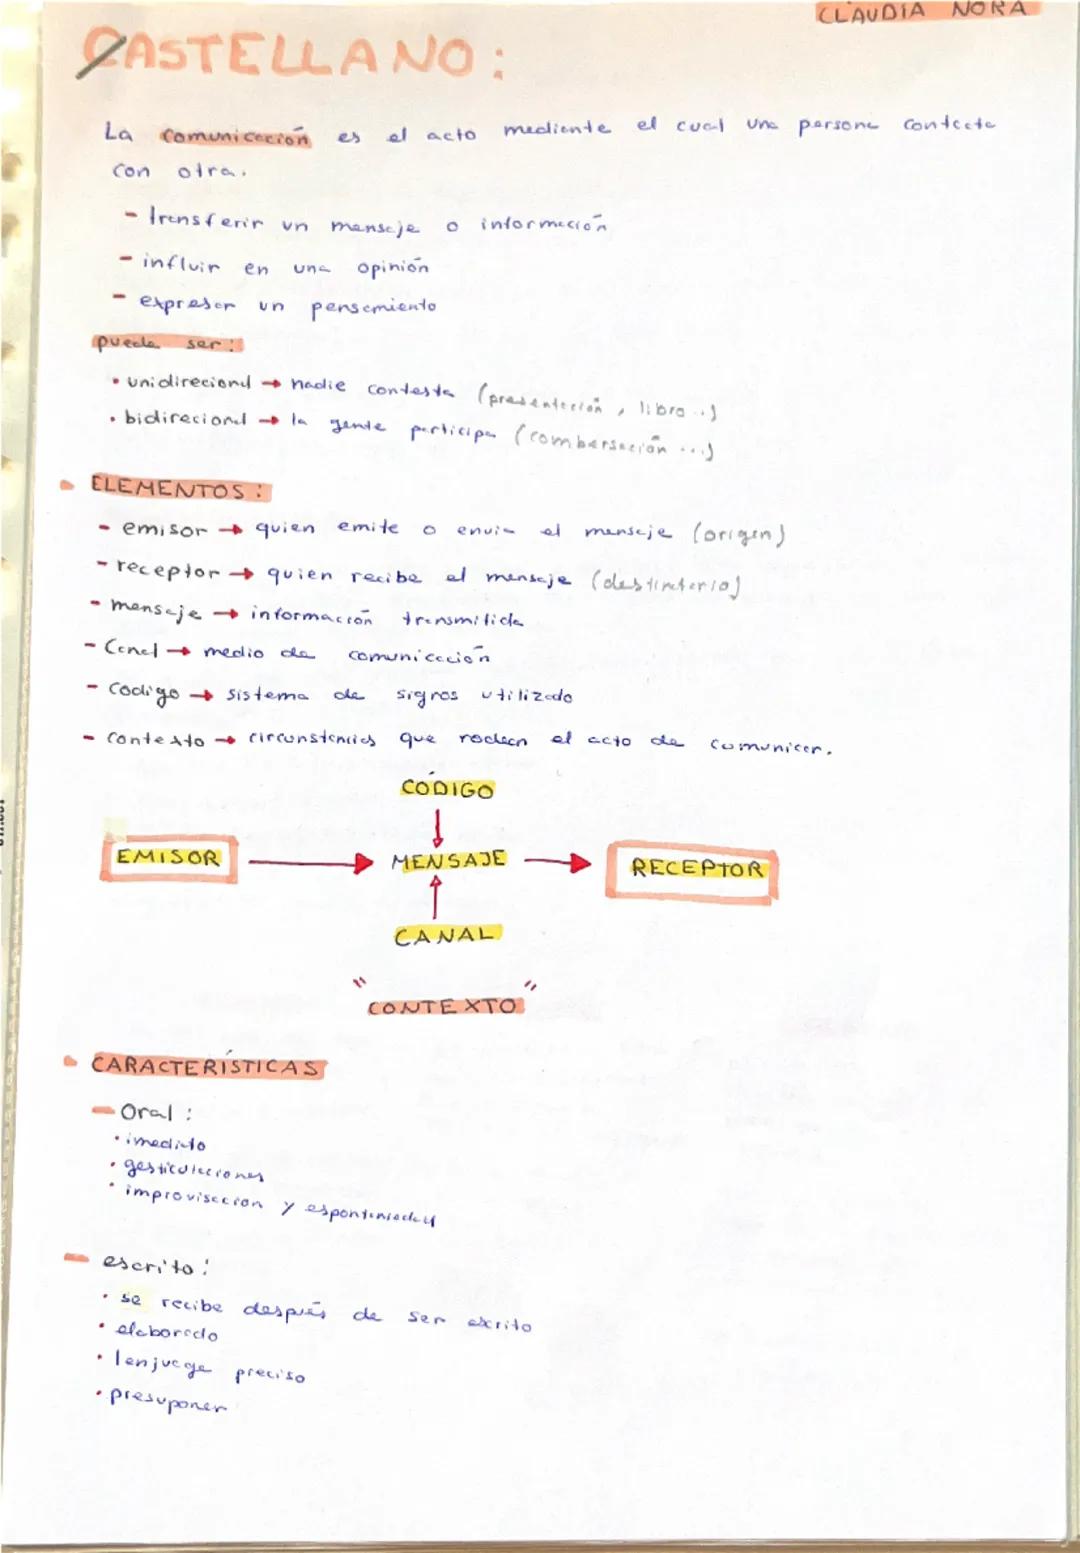 CLAUDIA NORA
CASTELLANO:
La comunicación es el acto mediante el cual una persona contecta
con otra.
- Transferir un mensaje o información
- influir en una opinión
- expresar un pensamiento
puede ser:
• unidirecional → nadie contesta (presentación, libro..)
• bidirecional → la gente participa (combersación ...)
ELEMENTOS:
- emisor → quien emite o envia el mensaje (origen)
- receptor → quien recibe el mensaje (destinatario)
- mensaje → información transmitida
- Canal → medio de comunicación
- Codigo → sistema de signos utilizado
- Contexto → circunstancias que rodean el acto de comunicar.
CÓDIGO
EMISOR → MENSAJE → RECEPTOR
CANAL
"CONTEXTO"
CARACTERÍSTICAS
- Oral:
• imediato
• gesticulaciones
• improvisacion y espontaniedad
- escrito:
• se recibe después de ser escrito
• elaborado
• lenjuage preciso
• presuponer